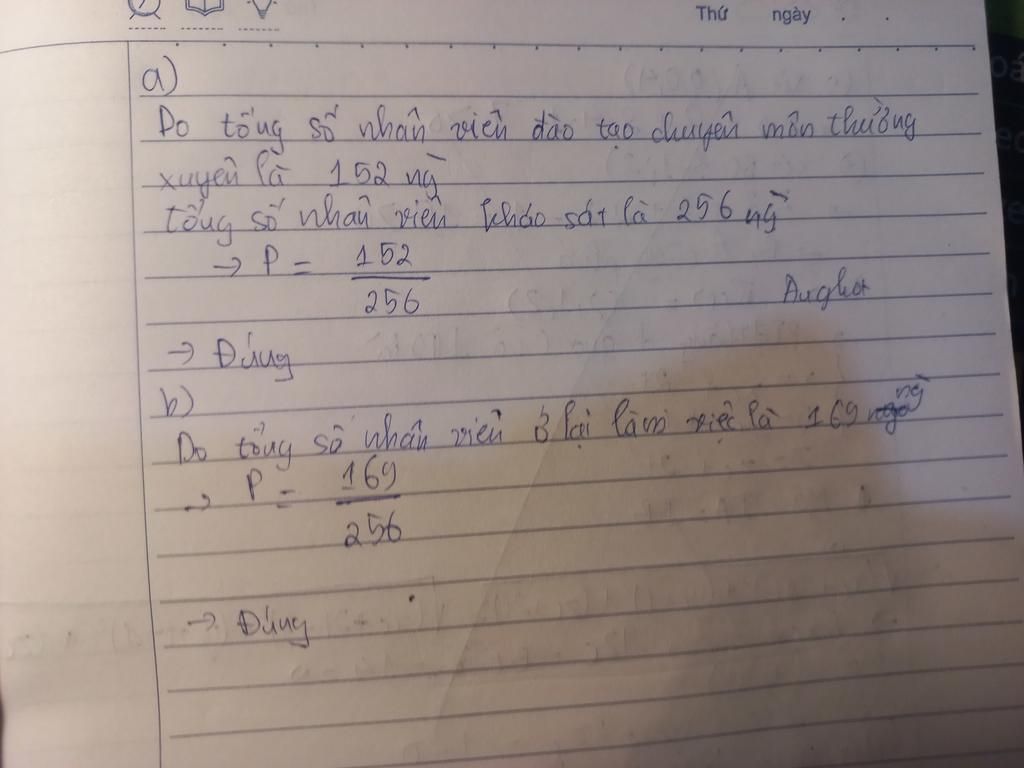 Thứ ngày . .
a)
Do tổng số nhân viên đào tạo chuyên môn thường
xuyên là 152 ng`
tổng số nhân viên khảo sát là 256 ng`
→ P = 152
256
→ Đúng
b)
Do tổng số nhân viên ở lại làm việc là 169 ng`
→ P = 169
256
→ Đúng